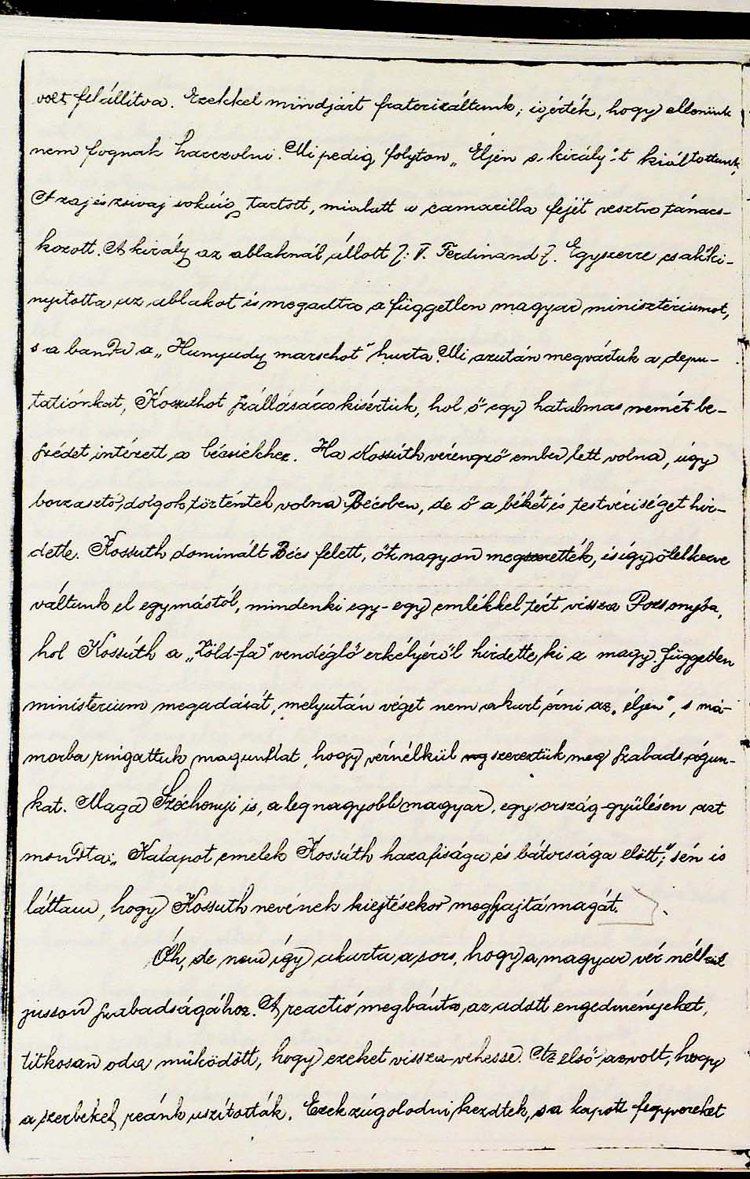 volt felállítva. Ezekkel mindjárt fraterizáltunk; igérték, hogy ellenünk
nem fognak harczolni. Mi pedig folyton „Éljen a király"-t kiáltottunk,
A zaj és zsivaj sokáig tartott, mialatt a camarilla fejét vesztve tanács-
kozott. A király az ablaknál állott /: V. Ferdinand /. Egyszerre csak ki-
nyitotta az ablakot és megadta a független magyar minisztériumot,
s a banda a „Hunyady marschot" huzta. Mi azután megvártuk a depu-
tatiónkat, Kossuthot szállására kisértük, hol ő egy hatalmas német be-
szédet intézett a bécsiekhez. Ha Kossúth vérengző ember lett volna, úgy
borzasztó dolgok történtek volna Bécsben, de ő a békét és testvériséget hir-
dette. Kossuth dominált Bécs felett, őt nagyon megszerették, és így ölelkezve
váltunk el egymástól, mindenki egy-egy emlékkel tért vissza Pozsonyba,
hol Kossúth a „Zöld-fa" vendéglő erkélyéről hirdette ki a magy. független
ministerium megadását, melyután véget nem akart érni az „éljen", s má-
morba ringattuk magunkat, hogy vérnélkül szereztük meg szabadságun-
kat. Maga Széchenyi is, a legnagyobb magyar, egy ország-gyűlésen azt
mondta: „Kalapot emelek Kossúth hazafisága és bátorsága előtt;" s én is
láttam, hogy Kossuth nevének kiejtésekor meghajtá magát.
Óh, de nem így akarta a sors, hogy a magyar vér nélkül
jusson szabadságához. A reactió megbánta az adott engedményeket,
titkosan oda működött, hogy ezeket vissza vehesse. Az első az volt, hogy
a szerbeket reánk uszították. Ezek zúgolodni kezdtek, s a kapott fegyvereket